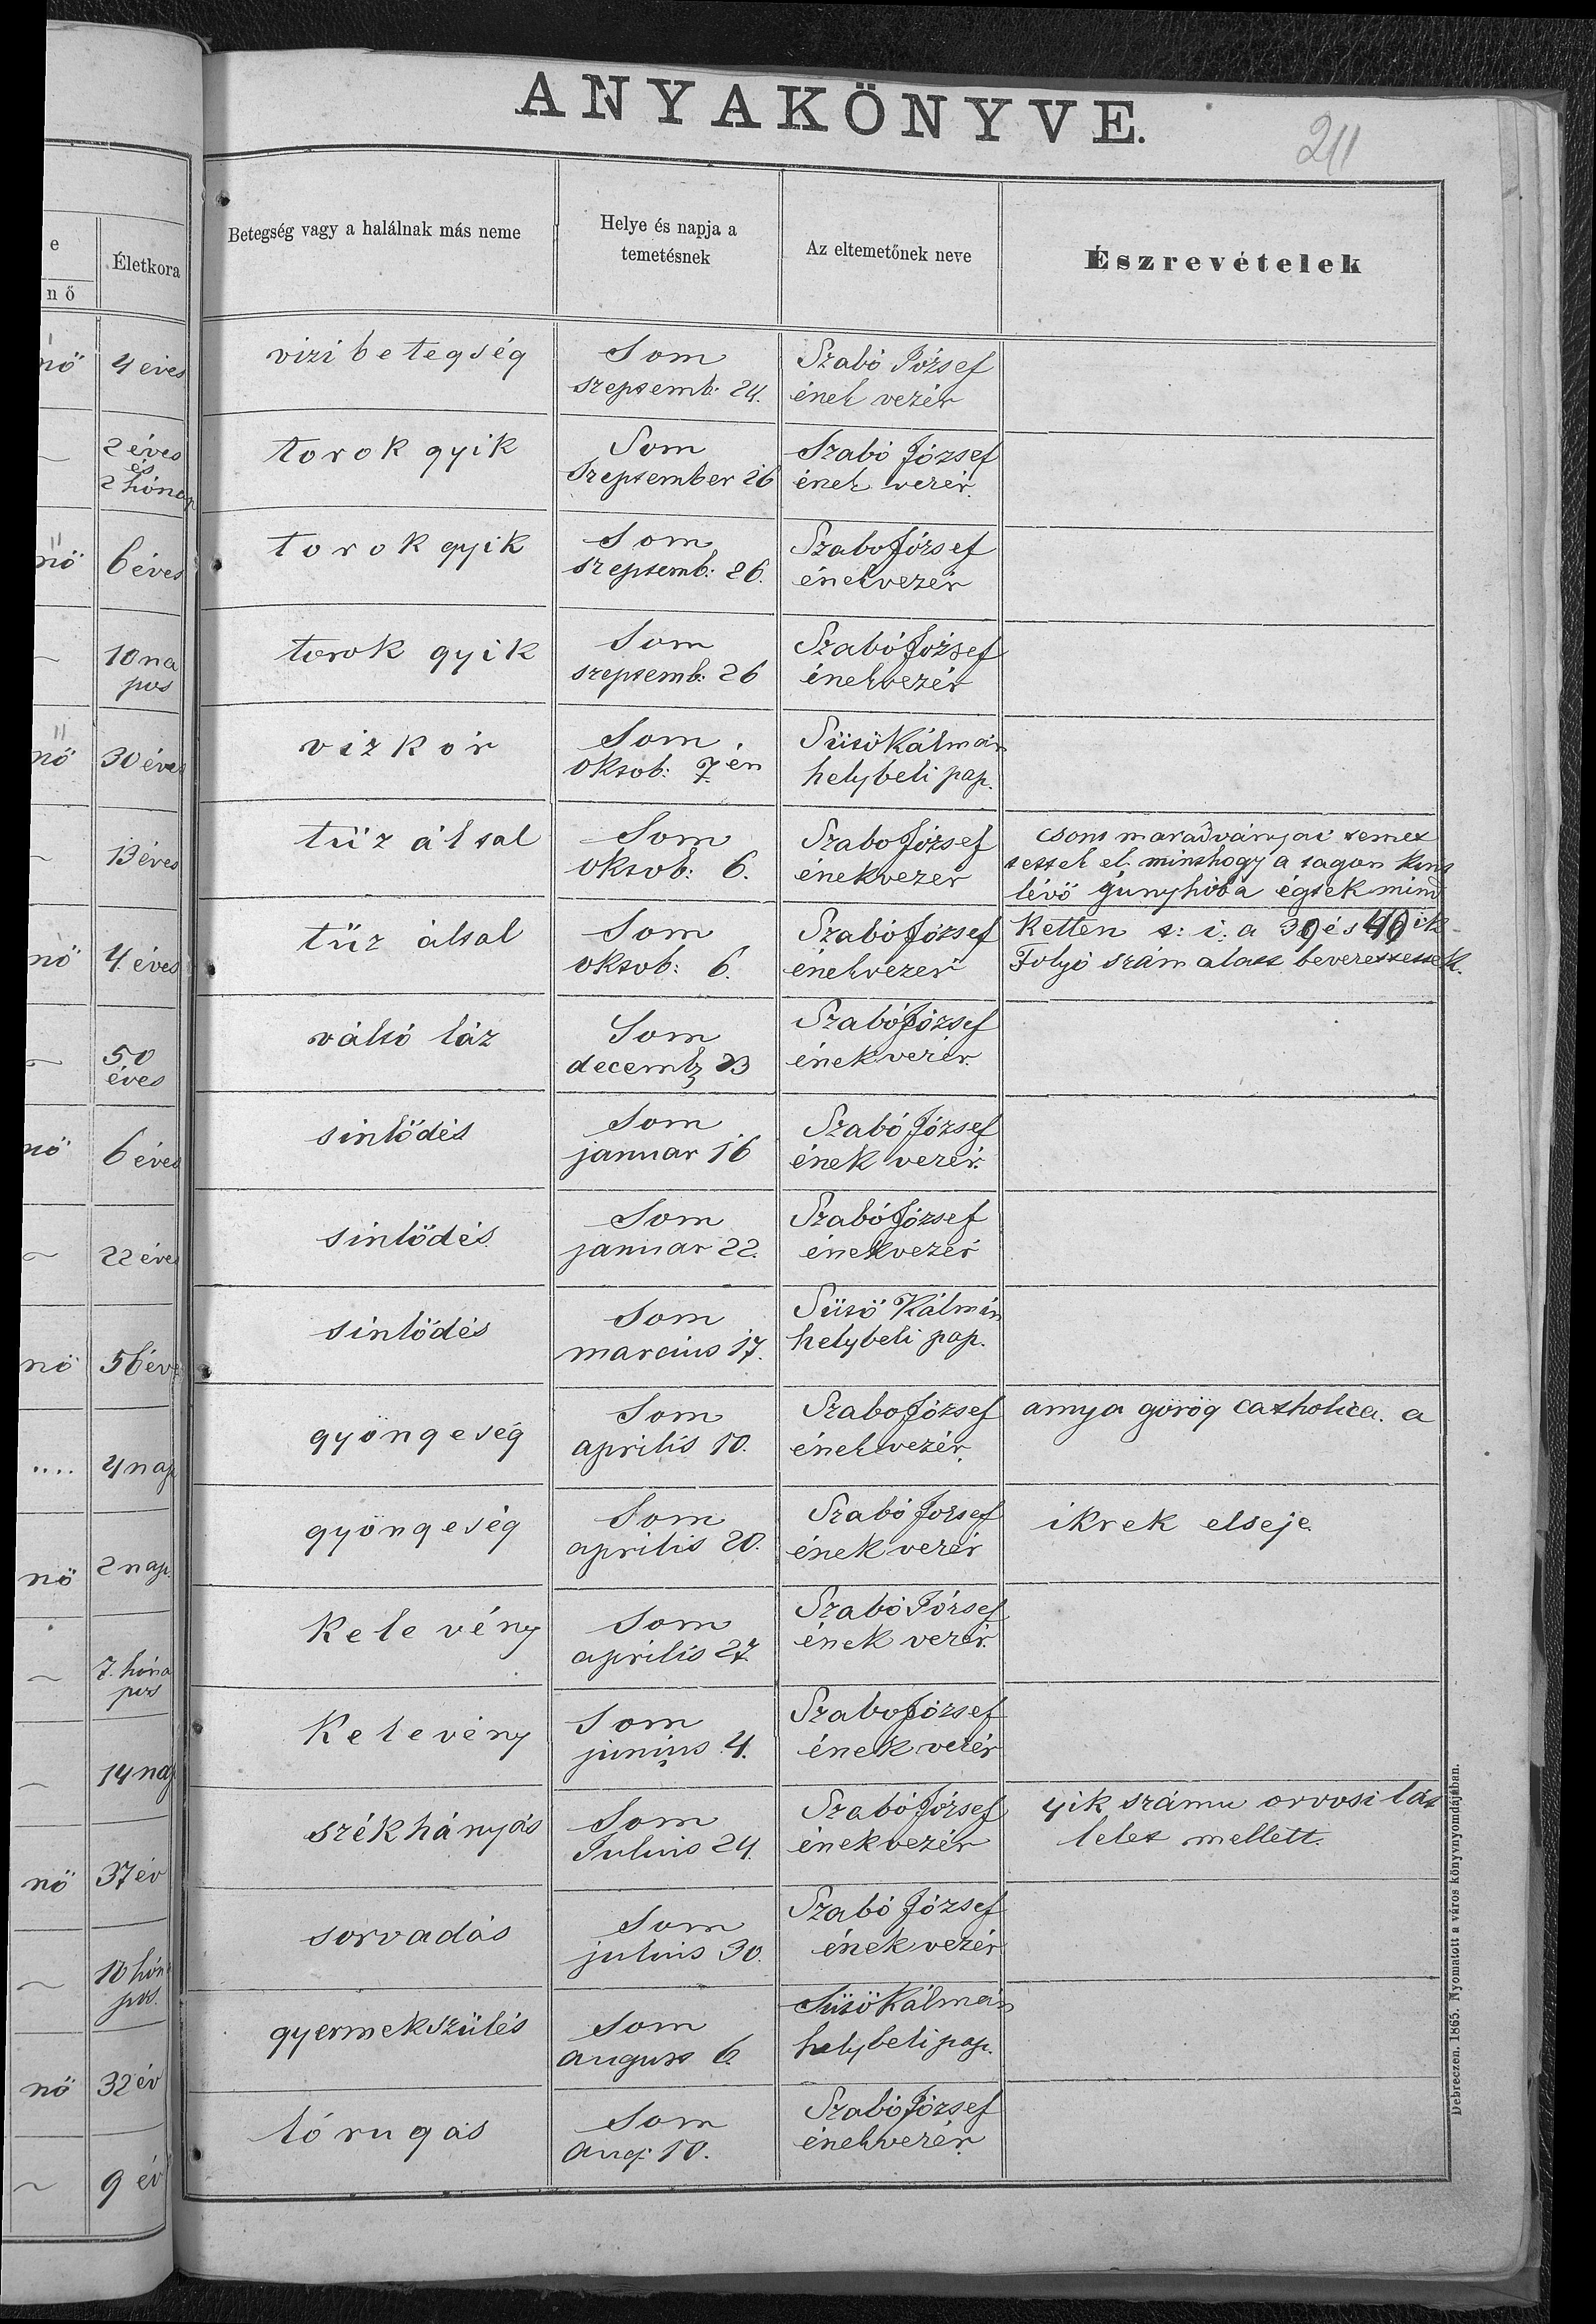 ANYAKÖNYVE.
211
e
nő
Életkora
Betegség vagy a halálnak más neme
Helye és napja a
temetésnek
Az eltemetőnek neve
Észrevételek
nő
4 éves
vizibetegség
Som
szeptemb: 24.
Szabó József
ének vezér
2 éves
és
2 hónap
torokgyik
Som
Szeptember 26
Szabó József
ének vezér.
nő
6 éves
torokgyik
Som
szeptemb: 26.
Szabo József
énekvezér
10 na
pos
torok gyik
Som
szeptemb: 26
Szabó József
énekvezér
nő
30 éves
vizkór
Som
oktob: 7én
Sütő Kálmán
helybeli pap.
13 éves
tüz által
Som
oktob: 6.
Szabo József
énekvezér
csont maradványai temet
tettek el minthogy a tagon
lévő gunyhóba égtek mind
nő
4 éves
tüz által
Som
oktob: 6.
Szabó József
énekvezér
Ketten t: i: a 39 és 40ik
Folyó szám alatt bevezettettek.
50
éves
váltó láz
Som
decemb 23
Szabó József
énekvezér.
nő
6 éves
sinlődés
Som
januar 16
Szabó József
ének vezér.
22 éves
sinlődés
Som
januar 22.
Szabó József
énekvezér
nő
56 éve
sinlődés
Som
március 17.
Sütő Kálmán
helybeli pap.
....
4 nap
gyöngeség
Som
április 10.
Szabo József
énekvezér.
annya görög catholica. a
nő
2 nap.
gyöngeség
Som
április 20.
Szabó József
ének vezér
ikrek elseje.
7. hóna
pos
Kelevény
Som
április 27.
Szabó József
ének vezér.
14 nap
Kelevény
Som
junius 4.
Szabo József
ének vezér
nő
37 év
székhányás
Som
Julius 24.
Szabó József
énekvezér
4ik számu orvosi lát
lelet mellett.
10 hón
pos.
sorvadás
Som
julius 30.
Szabó József
ének vezér
nő
32 év
gyermekszülés
Som
august 6.
Sütő Kálmán
helybeli pap.
9 év
lórugás
Som
Aug: 10.
Szabó József
énekvezér.
Debreczen. 1865. Nyomatott a város könyvnyomdájában.